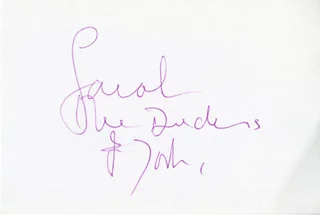 Sarah
The Duchess
of York,